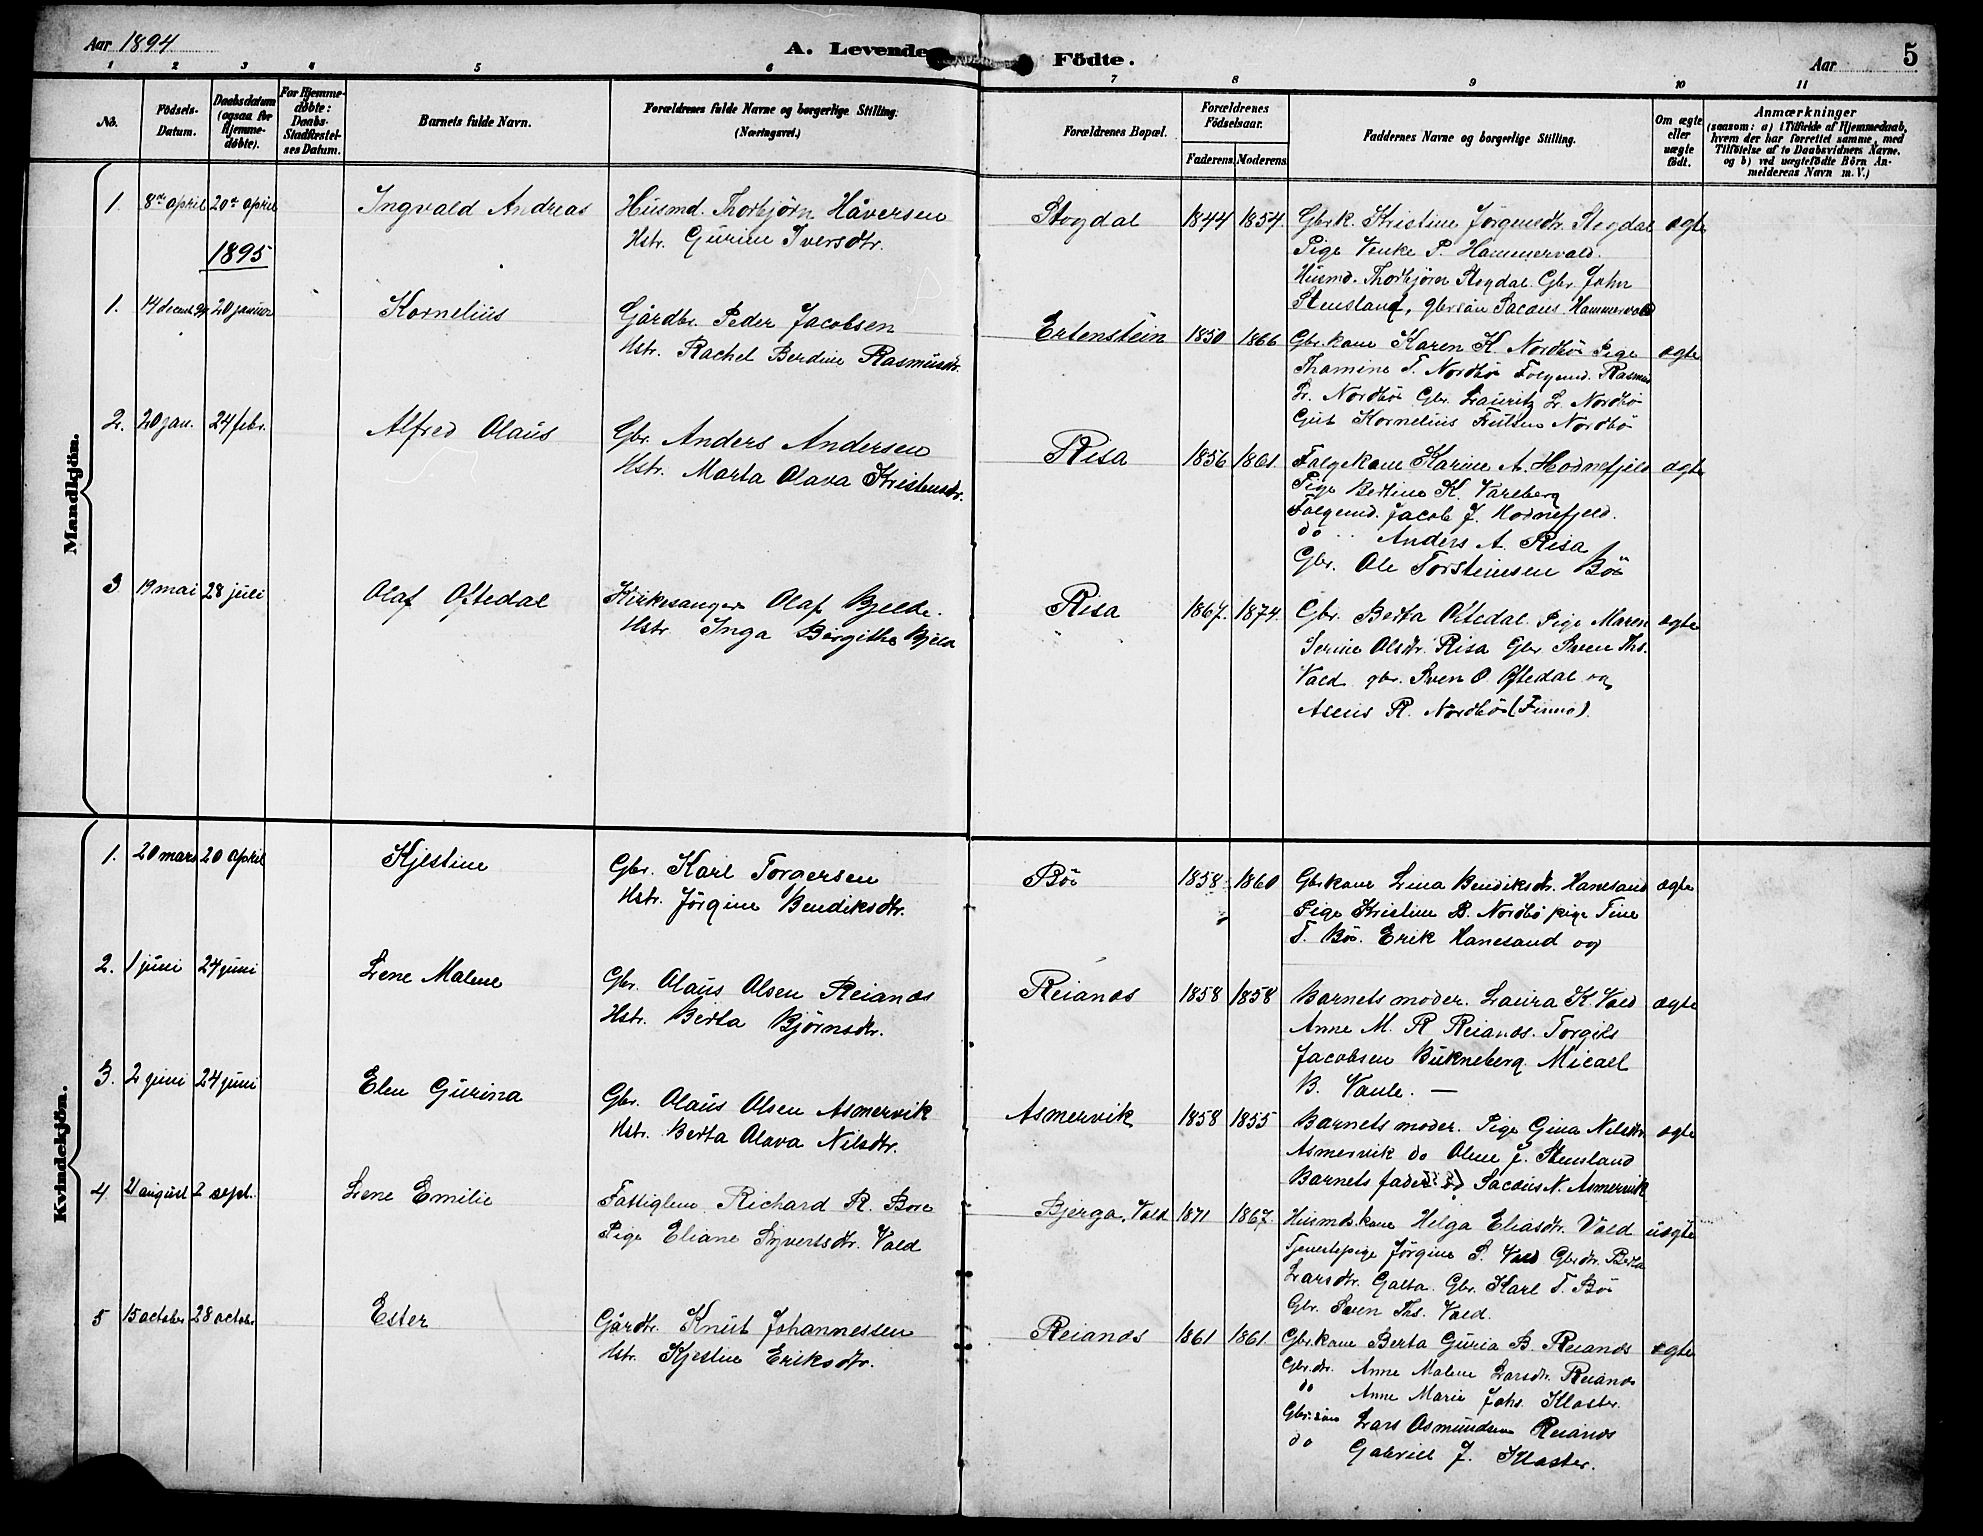 Aar 1894
A. Levende Födte.
Aar
5
1 2 3 4 5 6 7 8 9 10 11
No.
Födsels-Datum.
Daabsdatum (ogsaa for Hjemme-döbte).
For Hjemme-döbte: Daabs-Stadfæstel-ses Datum.
Barnets fulde Navn.
Forældrenes fulde Navne og borgerlige Stilling.
(Næringsvei.)
Forældrenes Bopæl.
Forældrenes Födselsaar.
Faderens. Moderens.
Faddernes Navne og borgerlige Stilling.
Om ægte eller uægte födt.
Anmærkninger
(saasom: a) i Tilfælde af Hjemmedaab,
hvem der har forrettet samme, med
Tilföielse af to Daabsvidners Navne,
og b) ved uægtefödte Börn An-
melderens Navn m. V.)
Mandkjön.
1. 8de april 20de april Ingvald Andreas Husmd. Thorbjörn Håversen Stogdal 1844 1854. Gbrk. Kristine Jörgensdtr. Stogdal ægte
Hstr. Gurine Iversdtr.
Pige Venke P. Hammervald.
Husmd. Thorbjörn Stogdal Gbr. John
Stensland, gbrsön Sacæus Hammervald
1895
1. 14 decemb. 94 20 januar Kornelius Gårdbr. Peder Jacobsen Ertenstein 1850 1866 Gbr.kone Karen K. Nordbö Pige ægte
Hstr. Rachel Berdine Rasmusdtr.
Thamine T. Nordbö Folgemd. Rasmus
L. Nordbö Gbr. Lauritz L. Nordbö
Gut Kornelius Nordbö
2. 20 jan. 24 febr. Alfred Olaus Gbr. Anders Andersen Risa 1856 1861. Folgekone Karine A. Hodnefjeld ægte
Hstr. Marta Olava Kristensdtr.
Pige Bertine K. Vareberg
Folgemd. Jacob J. Hodnefjeld.
do .. Anders A. Risa
Gbr. Ole Torsteinsen Bö
3 19 mai 28 juli Olaf Oftedal Kirkesanger Olaf Bjelde. Risa 1867. 1874. Gbr. Berta Oftedal. Pige Maren ægte
Hstr. Inga Birgithe Bjeld
Serine Olsdtr. Risa Gbr. Sven Ths.
Vald gbr. Sven O. Oftedal og
R. Nordbö (Finnö).
Kvindekjön.
1. 20 mars 20 april Kjestine Gbr. Karl Torgersen Bö 1858 1860 Gbrkone Lina Bendiksdtr. Hanesand ægte
Hstr. Jörgine Bendiksdtr.
Pige Kristine B. Nordbö pige Tine
T. Bö. Erik Hanesand og
2. 1 juni 24 juni Lene Malene Gbr. Olaus Olsen Reianes Reianes 1858 1858 Barnets moder. Laura K. Vald ægte
Hstr. Berta Björnsdtr.
Anne M. R Reianes. Torgils
Jacobsen Bukneberg Micael
B. Vaule. —
3. 2 juni 24 juni Elen Gurina Gbr. Olaus Olsen Asmervik Asmervik 1858 1855 Barnets moder. Pige Gina Nilsdtr. ægte
Hstr. Berta Olava Nilsdtr.
Asmervik do Olene J. Stensland
Barnets fader Sacæus N. Asmervik
4 21 august 2 sept. Lene Emilie Fattiglem Richard R. Bore Bjerga, Vald 1871 1867 Husmdskone Helga Eliasdtr. Vald uægte
Pige Eliane Syvertsdtr. Vald
Tjenestepige Jörgine S. Vald Gbrdtr. Berta
Larsdtr. Galta. Gbr. Karl T. Bö
Gbr. Sven Ths. Vald.
5 15 october 28 octobr. Ester Gårdbr. Knut Johannessen Reianes 1861 1861 Gbrkone Berta Guria B. Reianes ægte
Hstr. Kjestine Eriksdtr.
Gbr.dtr. Anne Malene Larsdtr. Reianes
do Anne Marie Johs. Kloster.
Gbr.sön Lars Osmundsen Reianes
do Gabriel J. Kloster.